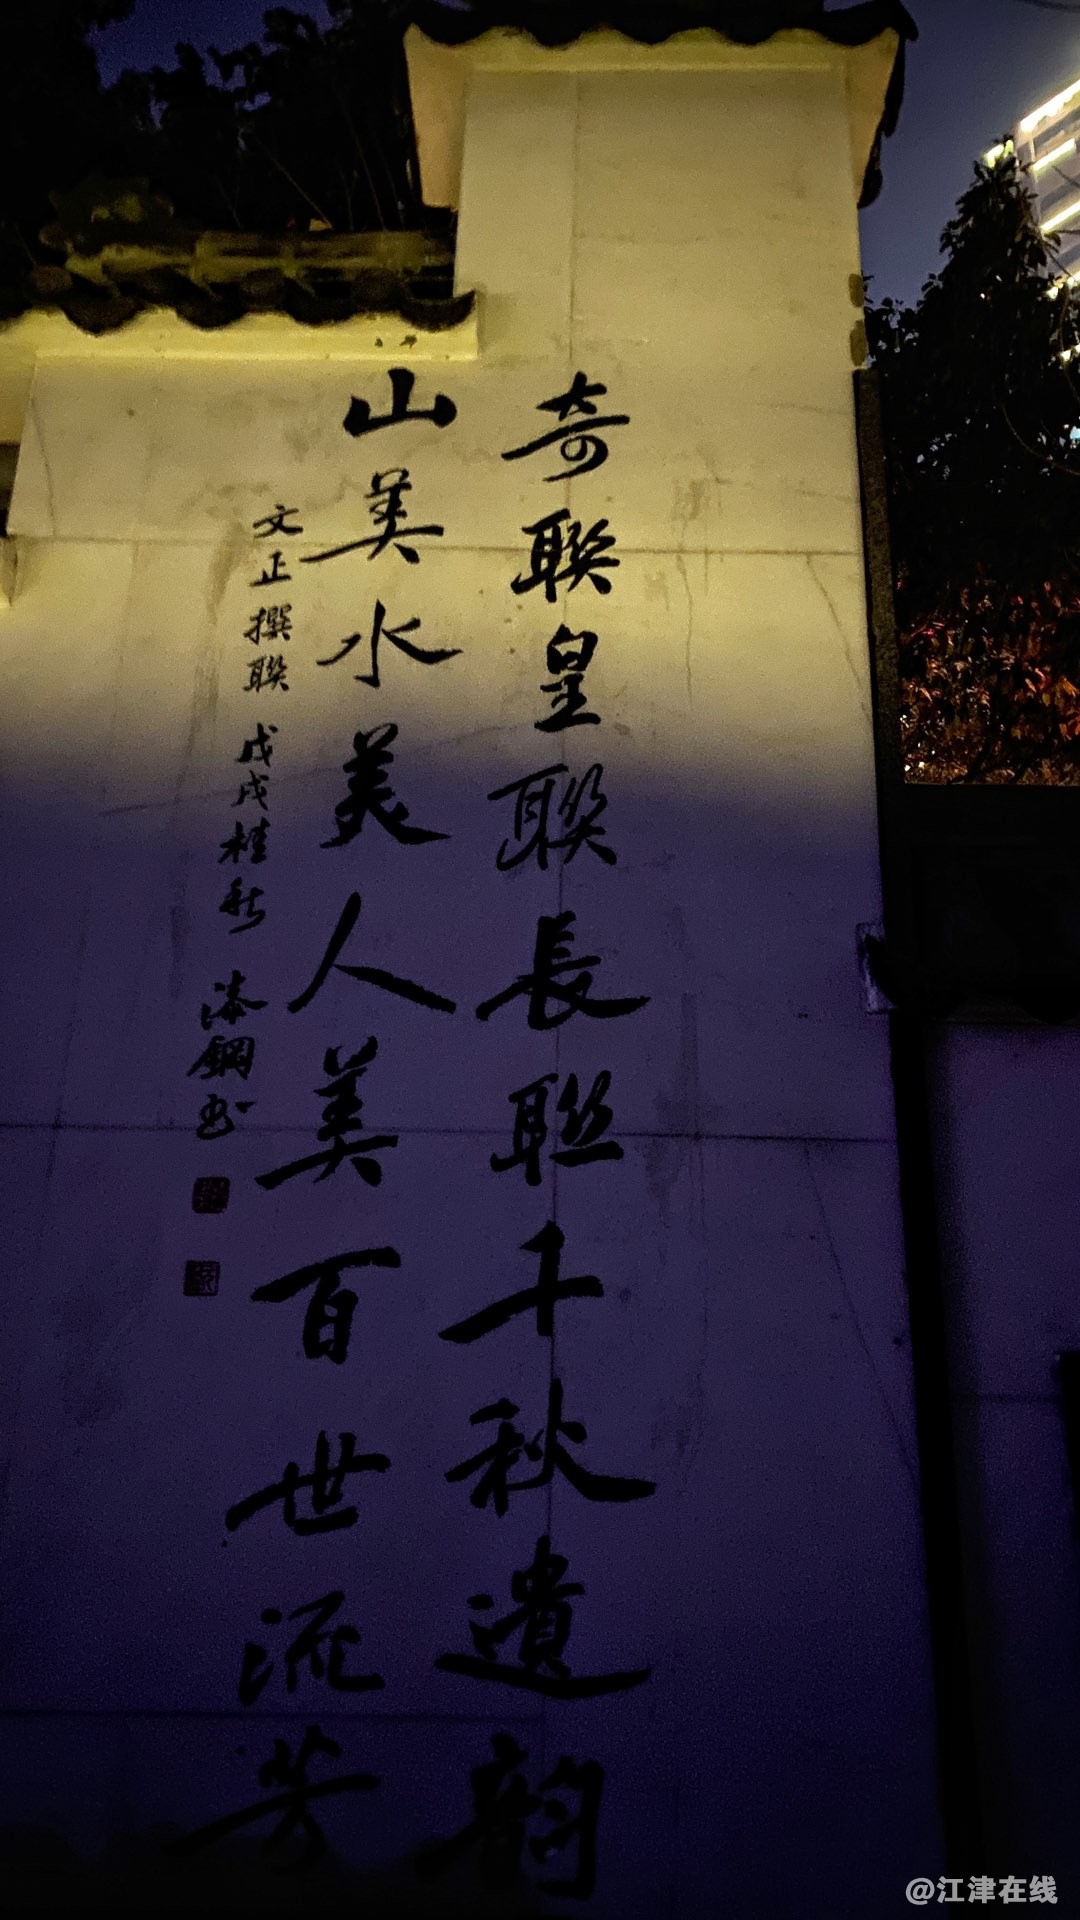 奇聯皇聯長聯千秋遺韵
山美水美人美百世流芳
文正撰聯 戊戌桂秋 漆鋼书
@江津在线